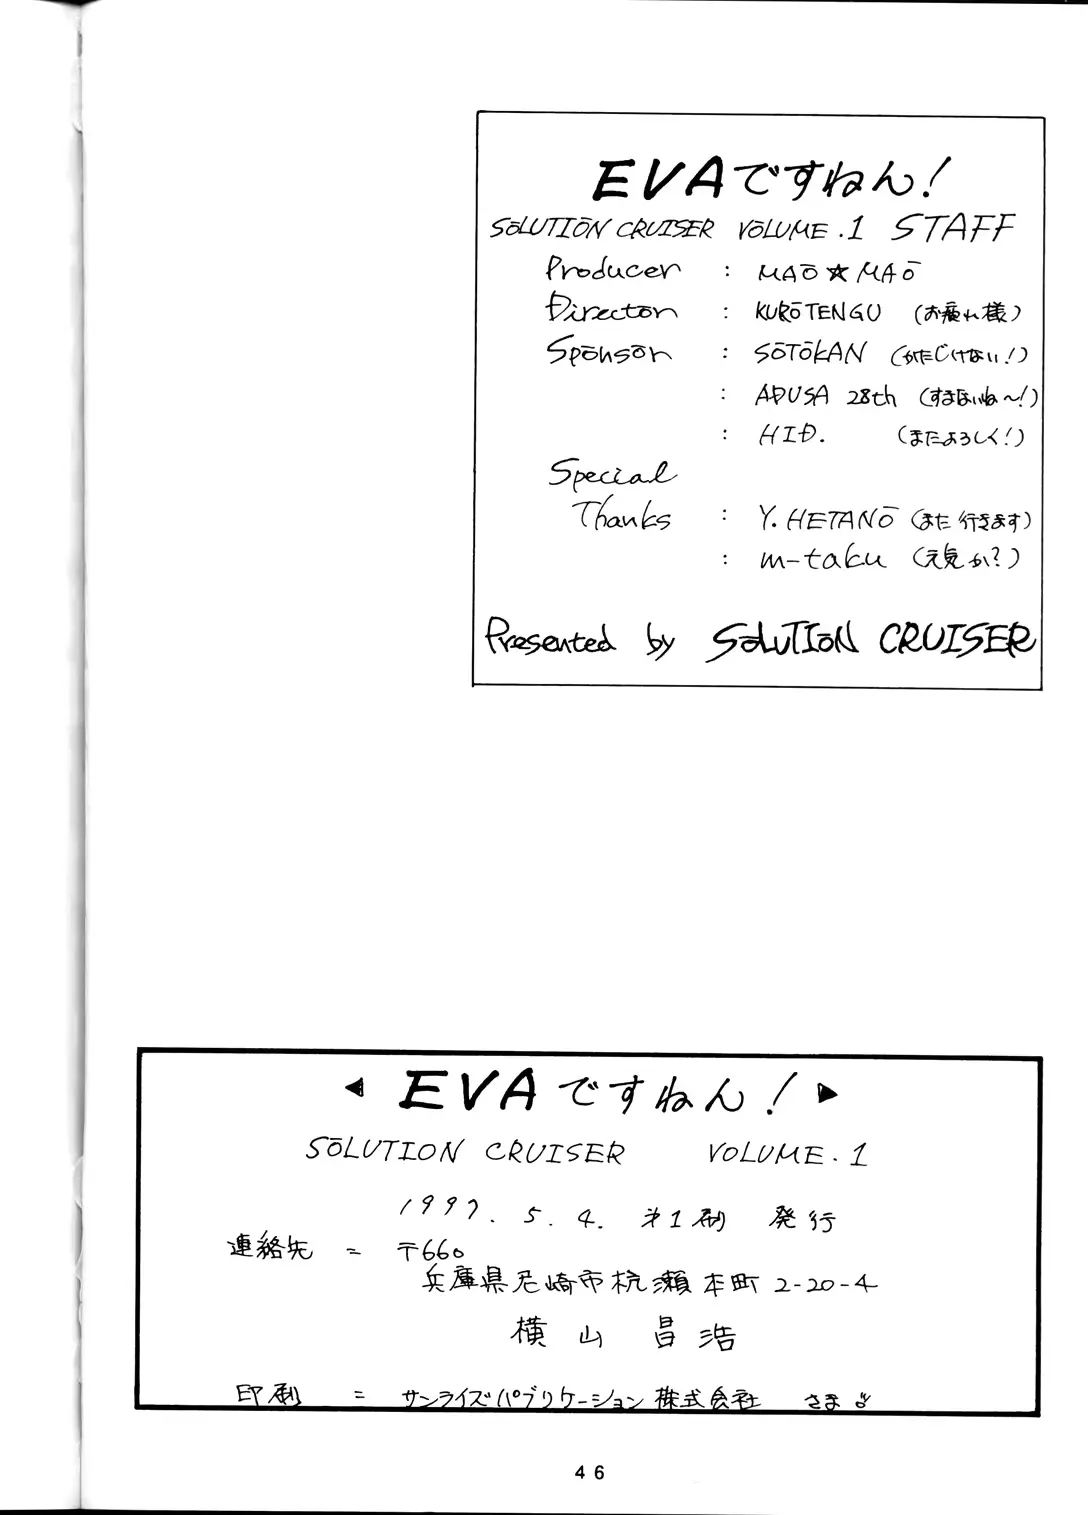 EVAですねん!
SōLUTIōN CRUISER VōLUME.1 STAFF
Producer : MAō★MAō
Director : KURōTENGU (お疲れ様)
Spōnsōr : SōTōKAN (かたじけない!)
: ADUSA 28th (すまないね〜!)
: HID. (またよろしく!)
Special
Thanks : Y.HETANō (また行きます)
: m-taku (元気か?)
Presented by SōLUTIōN CRUISER
◀ EVAですねん! ▶
SōLUTION CRUISER VOLUME.1
1997.5.4. 第1刷 発行
連絡先 = 〒660
兵庫県尼崎市杭瀬本町2-20-4
横山 昌浩
印刷 = サンライズパブリケーション株式会社 さま
46